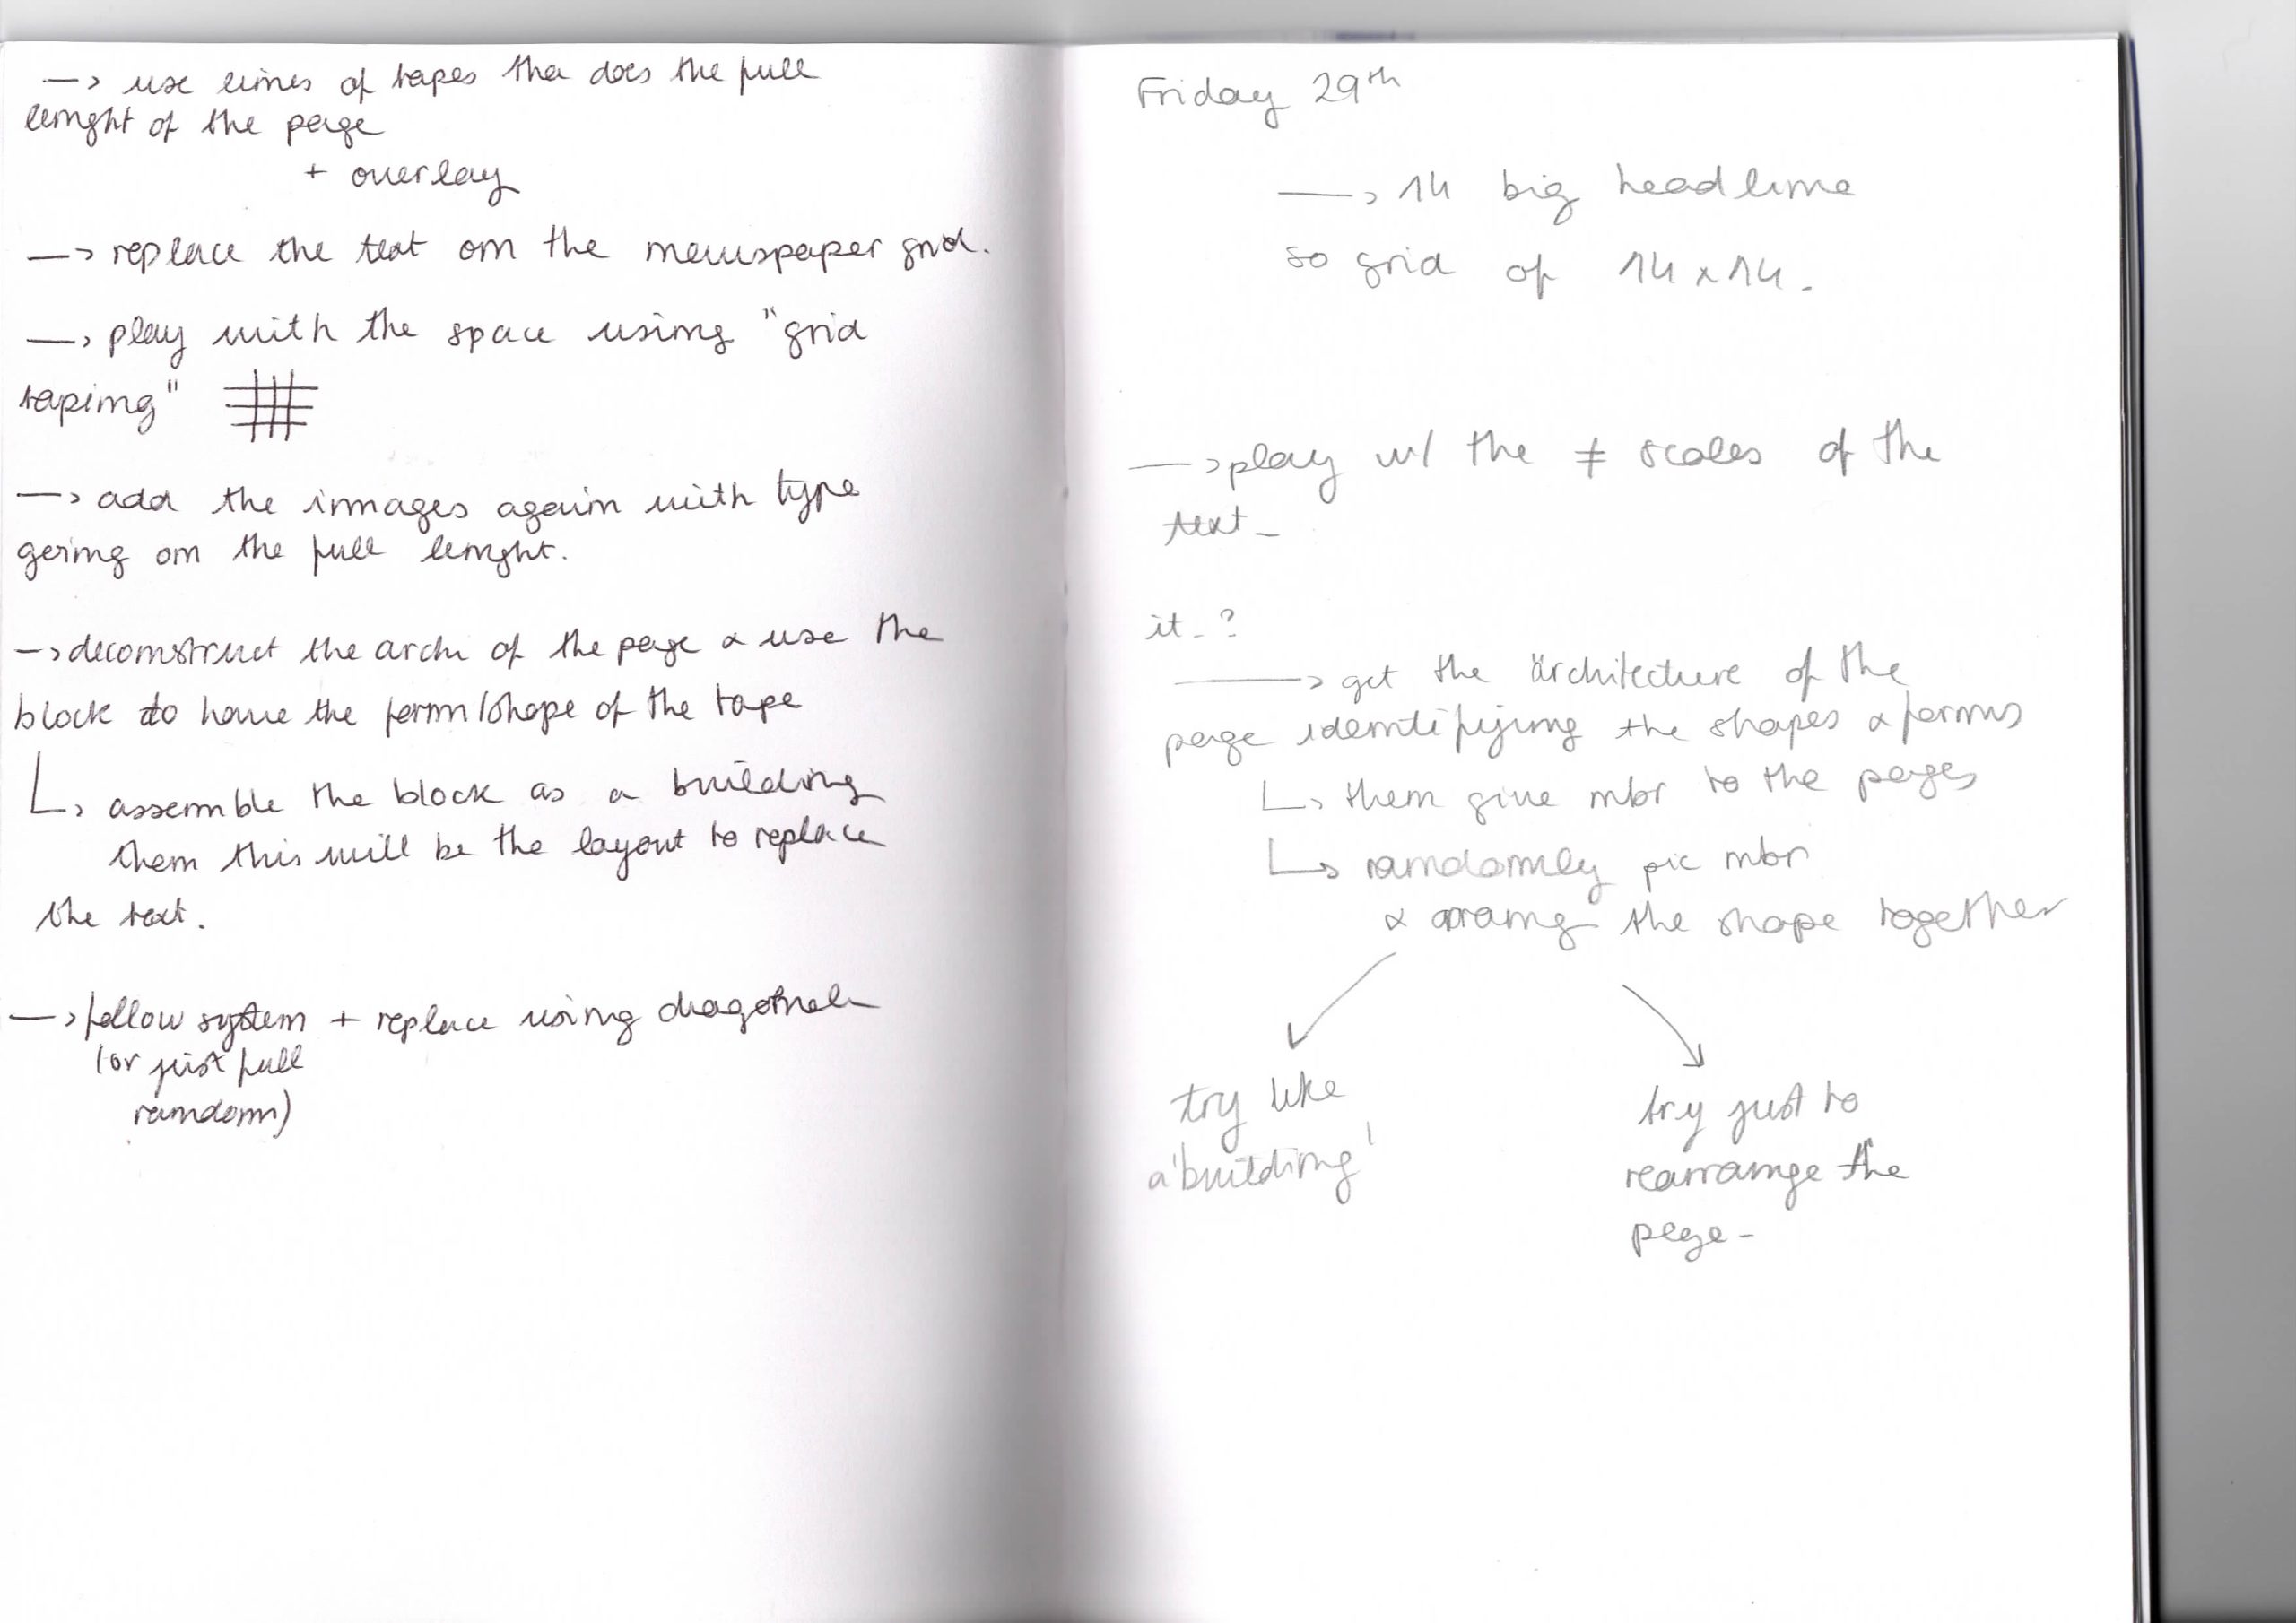 —> use lines of tapes tha does the full
lenght of the page
+ overlay
—> replace the text on the newspaper grid.
—> play with the space using "grid
taping"
—> add the images again with type
going on the full lenght.
—> deconstruct the archi of the page & use the
block to have the form/shape of the tape
↳ assemble the block as a building
then this will be the layout to replace
the text.
—> follow system + replace using diagonale
(or just full
random)
Friday 29th
—> 14 big headline
so grid of 14 x 14.
—> play w/ the ≠ scales of the
text -
it - ?
—> get the architecture of the
page identifying the shapes & forms
↳ then give nbr to the pages
↳ randomly pic nbr
& arrang the shape together
try like
a 'building'
try just to
rearrange the
page -